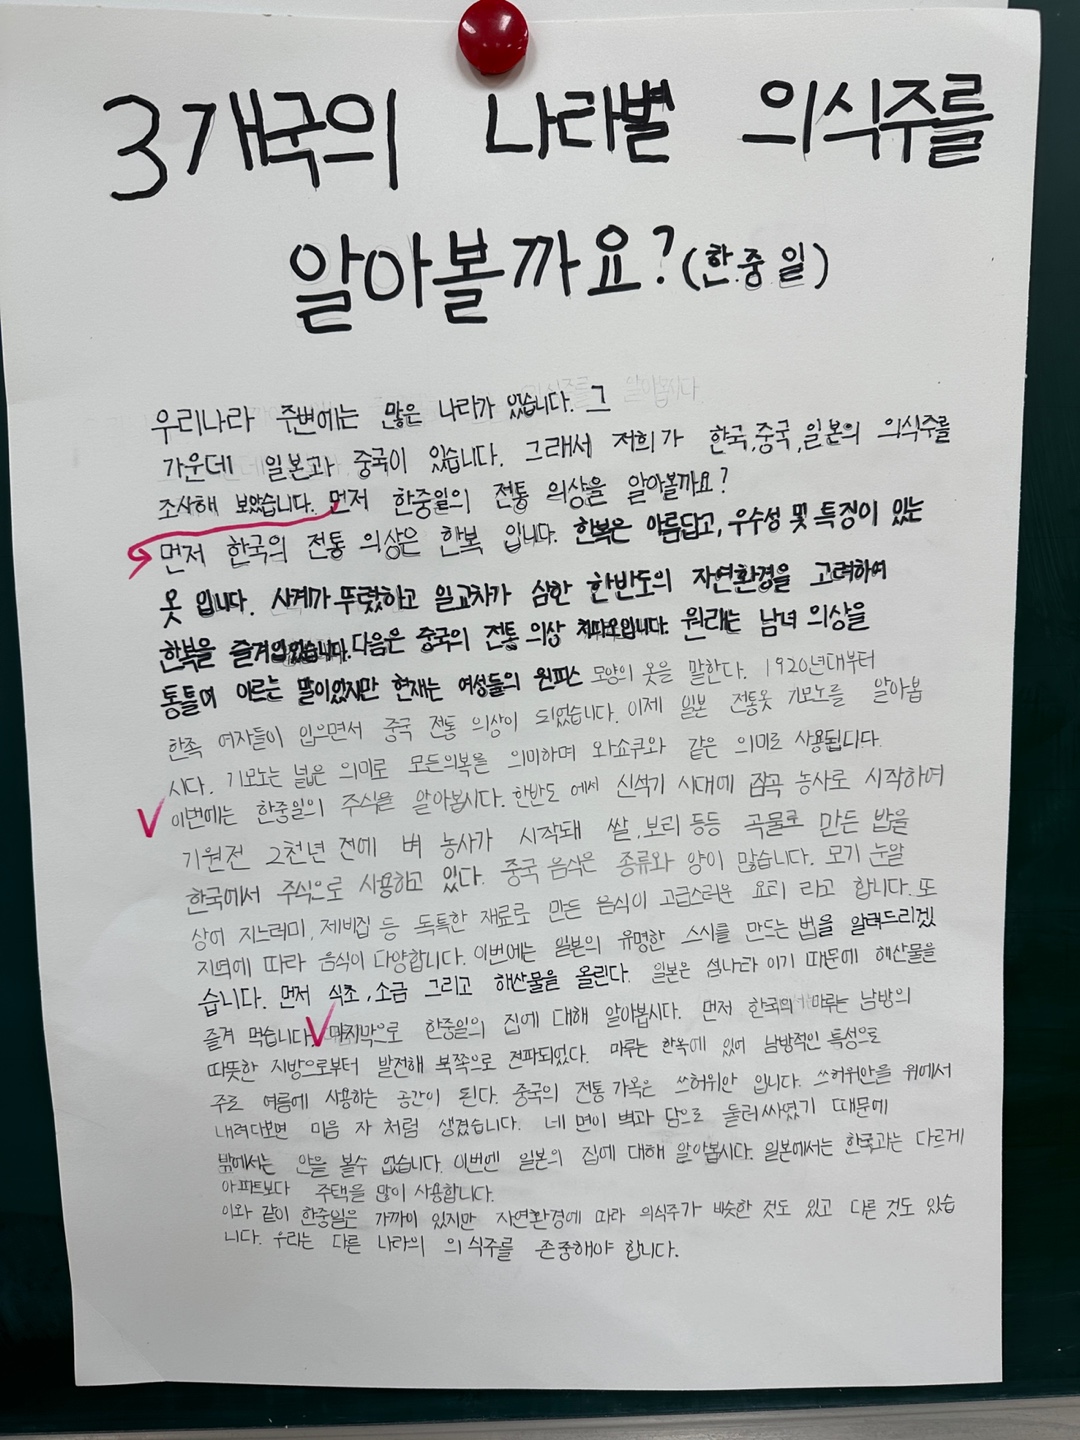 3개국의 나라별 의식주를
알아볼까요?(한.중 일)
우리나라 주변에는 많은 나라가 있습니다. 그
가운데 일본과 중국이 있습니다. 그래서 저희가 한국,중국,일본의 의식주를
조사해 보았습니다. 먼저 한중일의 전통 의상을 알아볼까요?
먼저 한국의 전통 의상은 한복 입니다. 한복은 아름답고, 우수성 및 특징이 있는
옷 입니다. 사계가 뚜렸하고 일교차가 심한 한반도의 자연환경을 고려하여
한복을 즐겨입었습니다. 다음은 중국의 전통 의상 치파오입니다. 원래는 남녀 의상을
통틀어 이르는 말이었지만 현재는 여성들의 원피스 모양의 옷을 말한다. 1920년대부터
한족 여자들이 입으면서 중국 전통 의상이 되었습니다. 이제 일본 전통옷 기모노를 알아봅
시다. 기모노는 넓은 의미로 모든의복을 의미하며 와쇼쿠와 같은 의미로 사용됩니다.
이번에는 한중일의 주식을 알아봅시다. 한반도 에서 신석기 시대에 잡곡 농사로 시작하여
기원전 2천년 전에 벼 농사가 시작돼 쌀,보리 등등 곡물로 만든 밥을
한국에서 주식으로 사용하고 있다. 중국 음식은 종류와 양이 많습니다. 모기 눈알
상어 지느러미, 제비집 등 독특한 재료로 만든 음식이 고급스러운 요리 라고 합니다. 또
지역에 따라 음식이 다양합니다. 이번에는 일본의 유명한 스시를 만드는 법을 알려드리겠
습니다. 먼저 식초, 소금 그리고 해산물을 올린다. 일본은 섬나라 이기 때문에 해산물을
즐겨 먹습니다. 마지막으로 한중일의 집에 대해 알아봅시다. 먼저 한국의 마루는 남방의
따뜻한 지방으로부터 발전해 북쪽으로 전파되었다. 마루는 한옥에 있어 남방적인 특성으로
주로 여름에 사용하는 공간이 된다. 중국의 전통 가옥은 쓰허위안 입니다. 쓰허위안을 위에서
내려다보면 미음 자 처럼 생겼습니다. 네 면이 벽과 담으로 둘러싸였기 때문에
밖에서는 안을 볼수 없습니다. 이번엔 일본의 집에 대해 알아봅시다. 일본에서는 한국과는 다르게
아파트보다 주택을 많이 사용합니다.
이와 같이 한중일은 가까이 있지만 자연환경에 따라 의식주가 비슷한 것도 있고 다른 것도 있습
니다. 우리는 다른 나라의 의 식주를 존중해야 합니다.